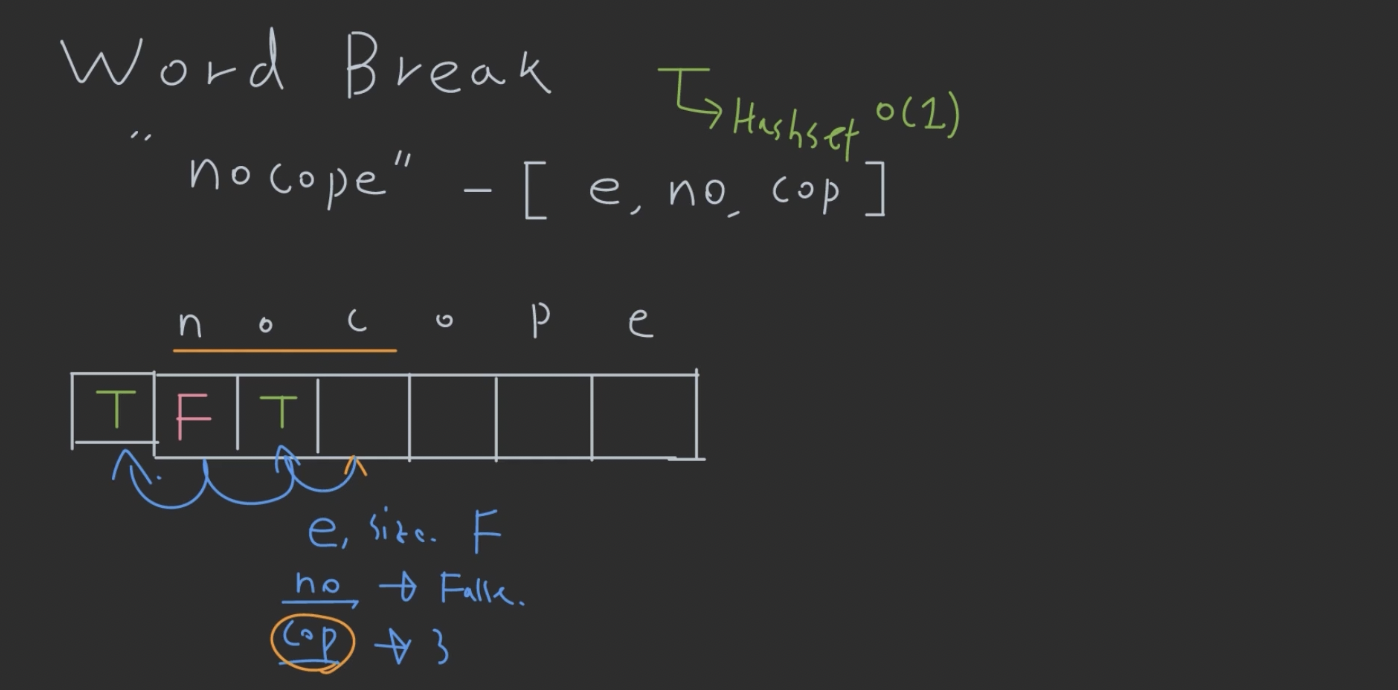 Word Break
T
Hashset O(1)
"nocope" - [ e, no, cop ]
n o c o p e
T F T
e, size. F
no → False.
cop → 3